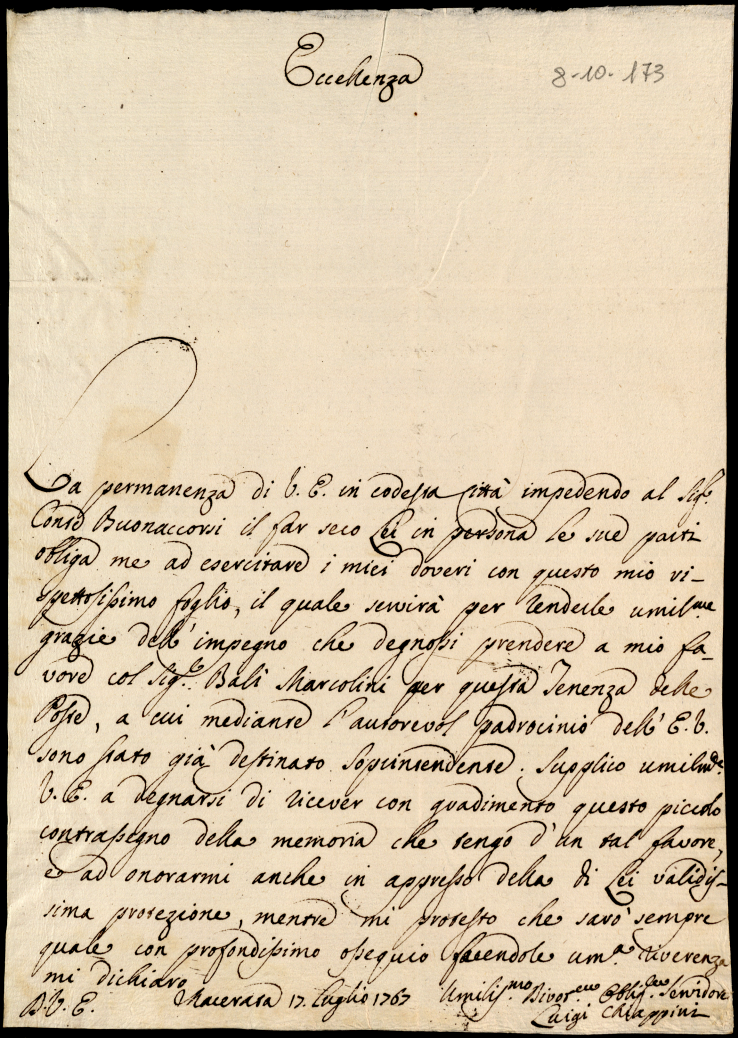 Eccellenza
8-10-173
La permanenza di V. E. in codesta Città impedendo al Sig.r
Conte Buonaccorsi il far seco Lei in persona le sue parti
obliga me ad esercitare i miei doveri con questo mio ri-
spettosissimo foglio, il quale servirà per renderle umil.me
grazie dell'impegno che degnossi prendere a mio fa-
vore col Sig.e Balì Marcolini per questa Tenenza delle
Poste, a cui mediante l'autorevol padrocinio dell'E. V.
sono stato già destinato Sopraintendente. Supplico umilm.te
V. E. a degnarsi di ricever con gradimento questo piccolo
contrasegno della memoria che tengo d'un tal favore,
e ad onorarmi anche in appresso della di Lei validis-
sima protezione, mentre mi protesto che sarò sempre
quale con profondissimo ossequio facendole um.a riverenza
mi dichiaro
D. V. E. Macerata 17. Luglio 1767 Umiliss.mo Divot.mo Oblig.mo Servidore
Luigi Chiappini